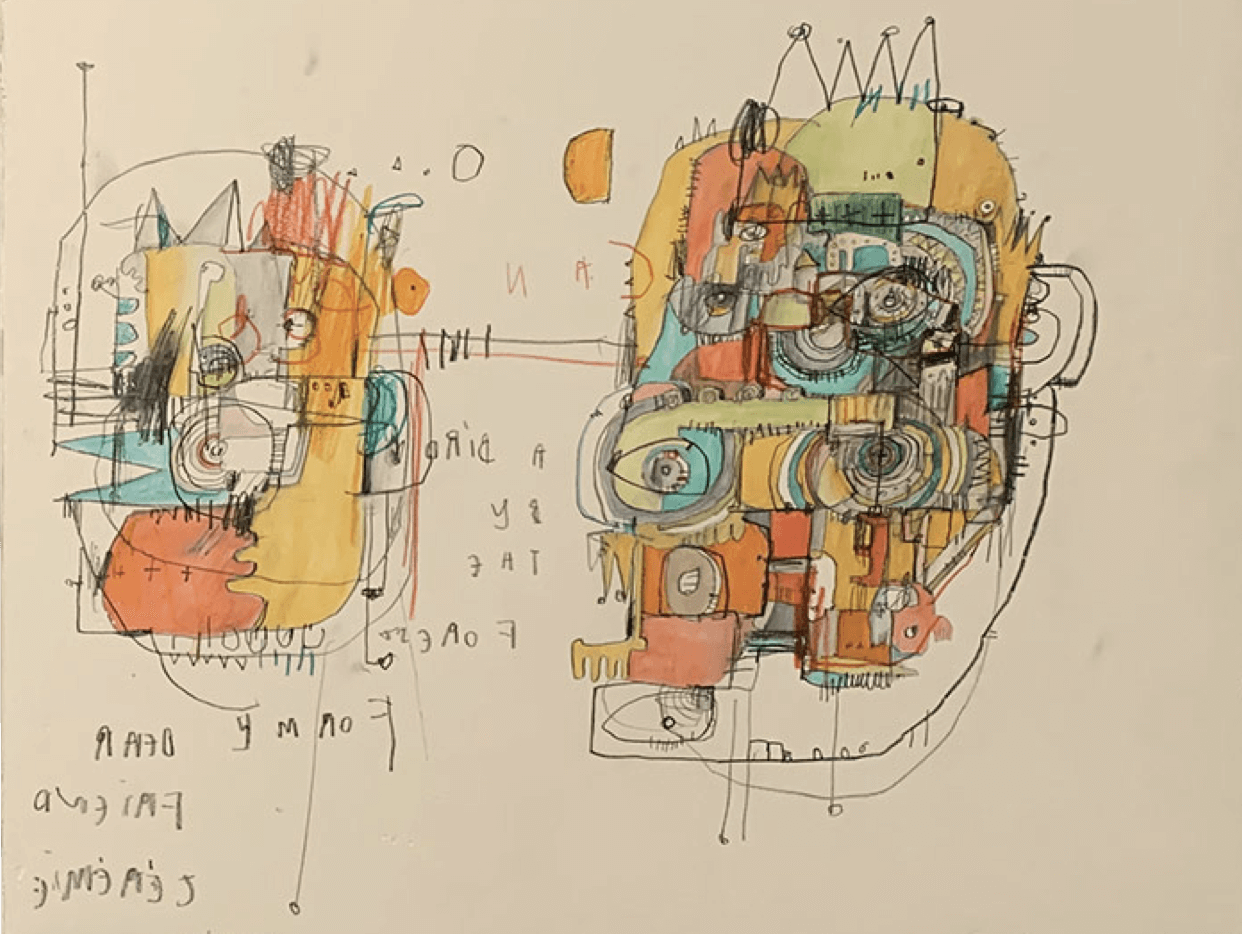 A BIRD
BY
THE
FOREST
FOR MY
DEAR
FRIEND
JÉRÉMIE